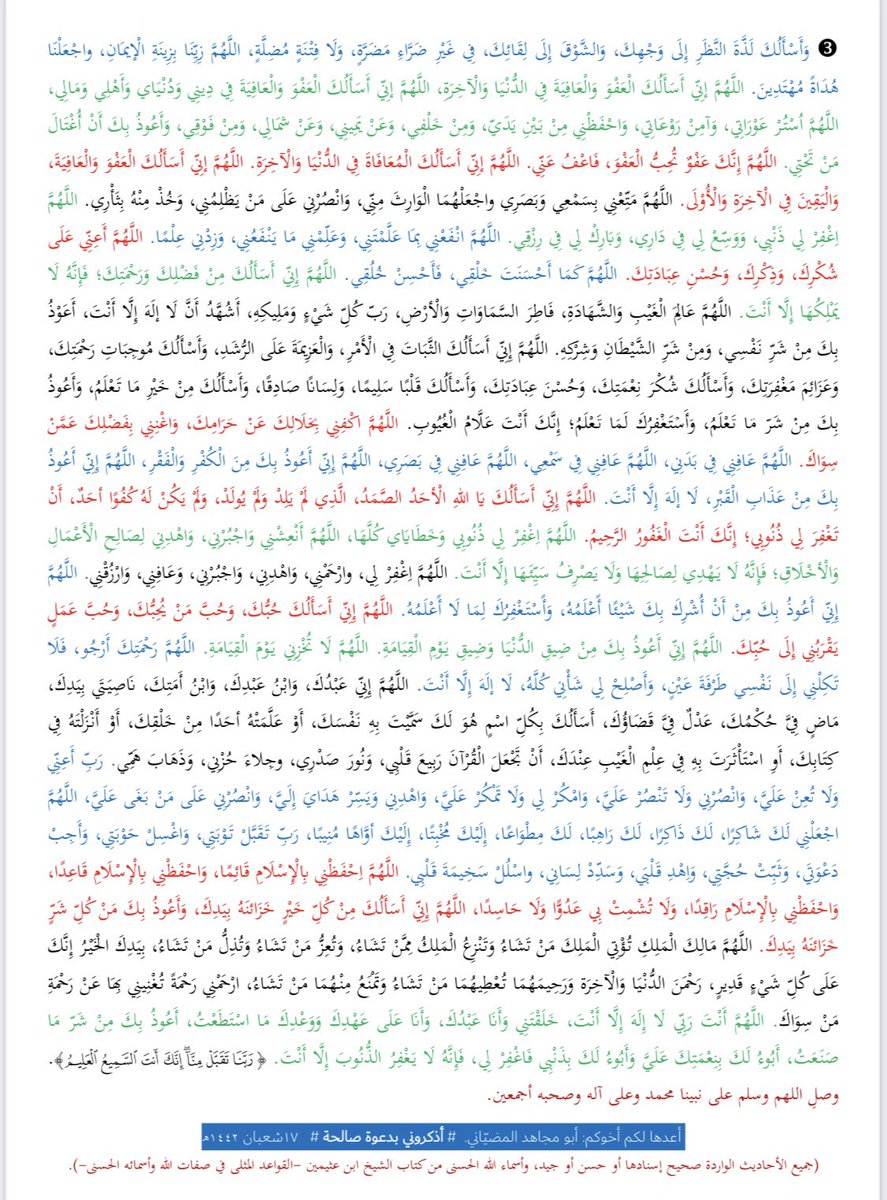 ❸ وَأَسْأَلُكَ لَذَّةَ النَّظَرِ إِلَى وَجْهِكَ، وَالشَّوْقَ إِلَى لِقَائِكَ، فِي غَيْرِ ضَرَّاءِ مَضَرَّةٍ، وَلَا فِتْنَةٍ مُضِلَّةٍ، اللَّهُمَّ زِيِّنَا بِزِينَةِ الْإِيمَانِ، واجْعَلْنَا
هُدَاةً مُهْتَدِينَ. اللَّهُمَّ إِنِّي أَسَأَلُكَ العَفْوَ وَالْعَافِيَةَ فِي الدُّنْيَا وَالْآخِرَةِ، اللَّهُمَّ إِنِّي أَسَأَلُكَ الْعَفْوَ وَالْعَافِيَةَ فِي دِينِي وَدُنْيَاي وَأَهْلِي وَمَالِي،
اللَّهُمَّ اُسْتُرْ عَوْرَاتِي، وَآمِنْ رَوْعَاتِي، وَاحْفَظْنِي مِنْ بَيْنِ يَدَيَّ، وَمِنْ خَلْفِي، وَعَنْ يَمِينِي، وَعَنْ شَمَالِي، وَمِنْ فَوْقِي، وَأَعُوذُ بِكَ أَنْ أُغْتَالَ
مَنْ تَحْتِي. اللَّهُمَّ إِنَّكَ عَفْوٌ تُحِبُّ الْعَفْوَ، فَاعْفُ عَنِّي. اللَّهُمَّ إِنِّي أَسَأَلُكَ الْمُعَافَاةَ فِي الدُّنْيَا وَالْآخِرَة. اللَّهُمَّ إنِّي أَسَأَلُكَ الْعَفْوَ وَالْعَافِيَةَ،
وَالْيَقِينَ فِي الْآخِرَةِ وَالْأُوْلَى. اللَّهُمَّ مَتِّعْنِي بِسَمْعِي وَبَصَرِي وَاجْعَلْهُمَا الْوَارِثَ مِنِّي، وَانْصُرْنِي عَلَى مَنْ يَظْلِمُنِي، وَخُذْ مِنْهُ بِثَأْرِي. اللَّهُمَّ
اِغْفِرْ لِي ذَنْبِي، وَوَسِّعْ لِي فِي دَارِي، وَبَارِكْ لِي فِي رِزْقِي. اللَّهُمَّ انْفَعْنِي بِمَا عَلَّمْتَنِي، وَعَلِّمْنِي مَا يَنْفَعُنِي، وَزِدْنِي عِلْمًا. اللَّهُمَّ أَعِنِّي عَلَى
شُكْرِكَ، وَذِكْرِكَ، وَحُسْنِ عِبَادَتِكَ. اللَّهُمَّ كَمَا أَحْسَنَتَ خَلْقِي، فَأَحْسِنْ خُلُقِي. اللَّهُمَّ إِنِّي أَسَأَلُكَ مِنْ فَضْلِكَ وَرَحْمَتِكَ؛ فَإِنَّهُ لَا
يَمْلِكُهَا إِلَّا أَنْتَ. اللَّهُمَّ عَالِمَ الْغَيْبِ وَالشَّهَادَةِ، فَاطِرَ السَّمَاوَاتِ وَالْأَرْضِ، رَبّ كُلّ شَيْءٍ وَمَلِيكِهِ، أَشْهَدُ أَنَّ لَا إِلَهَ إِلَّا أَنْتَ، أَعَوْذُ
بِكَ مِنْ شَرّ نَفْسِي، وَمِنْ شَرّ الشَّيْطَانِ وَشِرْكِهِ. اللَّهُمَّ إِنِّي أَسَأَلُكَ الثَّبَاتَ فِي الْأَمْرِ، وَالْعَزِيمَةَ عَلَى الرُّشَدِ، وَأَسْأَلُكَ مُوجِبَاتِ رَحْمَتِكَ،
وَعَزَائِمَ مَغْفِرَتِكَ، وَأَسْأَلُكَ شُكْرَ نِعْمَتِكَ، وَحُسْنَ عِبَادَتِكَ، وَأَسْأَلُكَ قَلْبًا سَلِيمًا، وَلِسَانًا صَادِقًا، وَأَسْأَلُكَ مِنْ خَيْرِ مَا تَعْلَمُ، وَأَعُوذُ
بِكَ مِنْ شَرّ مَا تَعْلَمُ، وَأَسْتَغْفِرُكَ لَمَا تَعْلَمُ؛ إِنَّكَ أَنْتَ عَلَّامُ الْغُيُوبِ. اللَّهُمَّ اكْفِنِي بِحَلَالِكَ عَنْ حَرَامِكَ، وَاغْنِنِي بِفَضْلِكَ عَمَّنْ
سِوَاكَ. اللَّهُمَّ عَافِنِي فِي بَدَنِي، اللَّهُمَّ عَافِنِي فِي سَمْعِي، اللَّهُمَّ عَافِنِي فِي بَصَرِي، اللَّهُمَّ إِنِّي أَعُوذُ بِكَ مِنَ الْكُفْرِ وَالْفَقْرِ، اللَّهُمَّ إِنِّي أَعُوذُ
بِكَ مِنْ عَذَابِ الْقَبْرِ، لَا إِلَهَ إِلَّا أَنْتَ. اللَّهُمَّ إِنِّي أَسَأَلُكَ يَا اللهِ الْأحَدُ الصَّمَدُ، الَّذِي لَمْ يَلِدْ وَلَمْ يُولَدْ، وَلَمْ يَكُنْ لَهُ كُفُوًا أحَدٌ، أَنْ
تَغْفِرَ لِي ذُنُوبِي؛ إِنَّكَ أَنْتَ الْغَفُورُ الرَّحِيمُ. اللَّهُمَّ اِغْفِرْ لِي ذُنُوبِي وَخَطَايَاي كُلَّهَا، اللَّهُمَّ أَنْعِشْنِي وَاجْبُرْنِي، وَاهْدِنِي لِصَالِحِ الْأَعْمَالِ
وَالْأخْلَاقِ؛ فَإِنَّهُ لَا يَهْدِي لِصَالِحِهَا وَلَا يَصْرِفُ سَيِّئَهَا إِلَّا أَنْتَ. اللَّهُمَّ اِغْفِرْ لِي، وارْحَمْنِي، وَاهْدِنِي، وَاجْبُرْنِي، وَعَافِنِي، وَارْزُقْنِي. اللَّهُمَّ
إِنِّي أَعُوذُ بِكَ مِنْ أَنْ أُشْرِكَ بِكَ شَيْئًا أَعْلَمُهُ، وَأَسْتَغْفِرُكَ لِمَا لَا أَعْلَمُهُ. اللَّهُمَّ إِنِّي أَسَأَلُكَ حُبُّكَ، وَحُبَّ مَنْ يُحِبُّكَ، وَحُبَّ عَمَلٍ
يَقْرَبُنِي إِلَى حُبِّكَ. اللَّهُمَّ إِنِّي أَعُوذُ بِكَ مِنْ ضِيقِ الدُّنْيَا وَضِيقِ يَوْمِ الْقِيَامَةِ. اللَّهُمَّ لَا تُخْزِنِي يَوْمَ الْقِيَامَةِ. اللَّهُمَّ رَحْمَتِكَ أَرْجُو، فَلَا
تَكِلْنِي إِلَى نَفْسِي طَرْفَةَ عَيْنٍ، وَأَصْلِحْ لِي شَأْنِي كُلَّهُ، لَا إلَهَ إِلَّا أَنْتَ. اللَّهُمَّ إِنِّي عَبْدُكَ، وَابْنُ عَبْدِكَ، وَابْنُ أَمَتِكَ، نَاصِيَتِي بِيَدِكَ،
مَاضٍ فِيَّ حُكْمُكَ، عَدْلٌ فِيَّ قَضَاؤُكَ، أَسَأَلُكَ بِكُلّ اسْمٍ هُوَ لَكَ سَمَّيْتَ بِهِ نَفْسَكَ، أَوْ عَلَّمَتْهُ أحَدًا مِنْ خَلْقِكَ، أَوْ أَنْزَلْتَهُ فِي
كِتَابِكَ، أَوِ اسْتَأْثَرَتَ بِهِ فِي عِلْمِ الْغَيْبِ عِنْدَكَ، أَنْ تَجْعَلَ الْقُرْآنَ رَبِيعَ قَلْبِي، وَنُورَ صَدْرِي، وَجِلاءَ حُزْنِي، وَذَهَابَ هَمِّي. رَبِّ أَعِنِّي
وَلَا تُعِنْ عَلَيَّ، وَانْصُرْنِي وَلَا تَنْصُرْ عَلَيَّ، وَامْكُرْ لِي وَلَا تَمْكُرْ عَلَيَّ، وَاهْدِنِي وَيَسِّرْ هَدَايَ إِلَيَّ، وَانْصُرْنِي عَلَى مَنْ بَغَى عَلَيَّ، اللَّهُمَّ
اجْعَلْنِي لَكَ شَاكِرًا، لَكَ ذَاكِرًا، لَكَ رَاهِبًا، لَكَ مِطْوَاعًا، إِلَيْكَ مُخْبِتًا، إِلَيْكَ أوَّاهًا مُنِيبًا، رَبِّ تَقَبَّلْ تَوْبَتِي، وَاغْسِلْ حَوْبَتِي، وَأَجِبْ
دَعْوَتِي، وَثَبِّتْ حُجَّتِي، وَاهْدِ قَلْبَي، وَسَدِّدْ لِسَانِي، واسْلُلْ سَخِيمَةَ قَلْبِي. اللَّهُمَّ اِحْفَظْنِي بِالْإِسْلَامِ قَائِمًا، وَاحْفَظْنِي بِالْإِسْلَامِ قَاعِدًا،
وَاحْفَظْنِي بِالْإِسْلَامِ رَاقِدًا، وَلَا تُشْمِتْ بِي عَدُوًّا وَلَا حَاسِدًا، اللَّهُمَّ إِنِّي أَسَأَلُكَ مِنْ كُلّ خَيْرٍ خَزَائنَهُ بِيَدِكَ، وَأَعُوذُ بِكَ مَنْ كُلّ شَرٍّ
خَزَائنَهُ بِيَدِكَ. اللَّهُمَّ مَالِكَ الْمَلِكِ تُؤْتِي الْمَلِكَ مَنْ تَشَاءُ وَتَنْزِعُ الْمَلِكُ مِمَّنْ تَشَاءُ، وَتُعِزُّ مَنْ تَشَاءُ وَتُذِلُّ مَنْ تَشَاءُ، بِيَدِكَ الْخَيْرُ إِنَّكَ
عَلَى كُلّ شَيْءٍ قَدِيرٍ، رَحْمَنَ الدُّنْيَا وَالْآخِرَة وَرَحِيمَهُمَا تُعْطِيهُمَا مَنْ تَشَاءُ وَتَمْنُعُ مِنْهُمَا مَنْ تَشَاءُ، ارْحَمْنِي رَحْمَةً تُغْنِينِي بِهَا عَنْ رَحْمَةِ
مَنْ سِوَاكَ. اللَّهُمَّ أَنْتَ رَبِّي لَا إِلَهَ إِلَّا أَنْتَ، خَلَقْتَنِي وَأَنَا عَبْدُكَ، وَأَنَا عَلَى عَهْدِكَ وَوَعْدِكَ مَا اسْتَطَعْتُ، أَعُوذُ بِكَ مِنْ شَرّ مَا
صَنَعَتُ، أَبُوءُ لَكَ بِنِعْمَتِكَ عَلَيَّ وَأَبُوءُ لَكَ بِذَنْبِي فَاغْفِرْ لِي، فَإِنَّهُ لَا يَغْفِرُ الذُّنُوبَ إِلَّا أَنْتَ. ﴿رَبَّنَا تَقَبَّلْ مِنَّآ إِنَّكَ أَنتَ ٱلسَّمِيعُ ٱلْعَلِيمُ﴾.
وصلِ اللهم وسلم على نبينا محمد وعلى آله وصحبه أجمعين.
أعدها لكم أخوكم: أبو مجاهد المضيّاني. # أذكروني بدعوة صالحة # ١٧شعبان ١٤٤٢ه
(جميع الأحاديث الواردة صحيح إسنادها أو حسن أو جيد، وأسماء الله الحسنى من كتاب الشيخ ابن عثيمين -القواعد المثلى في صفات الله وأسمائه الحسنى-).